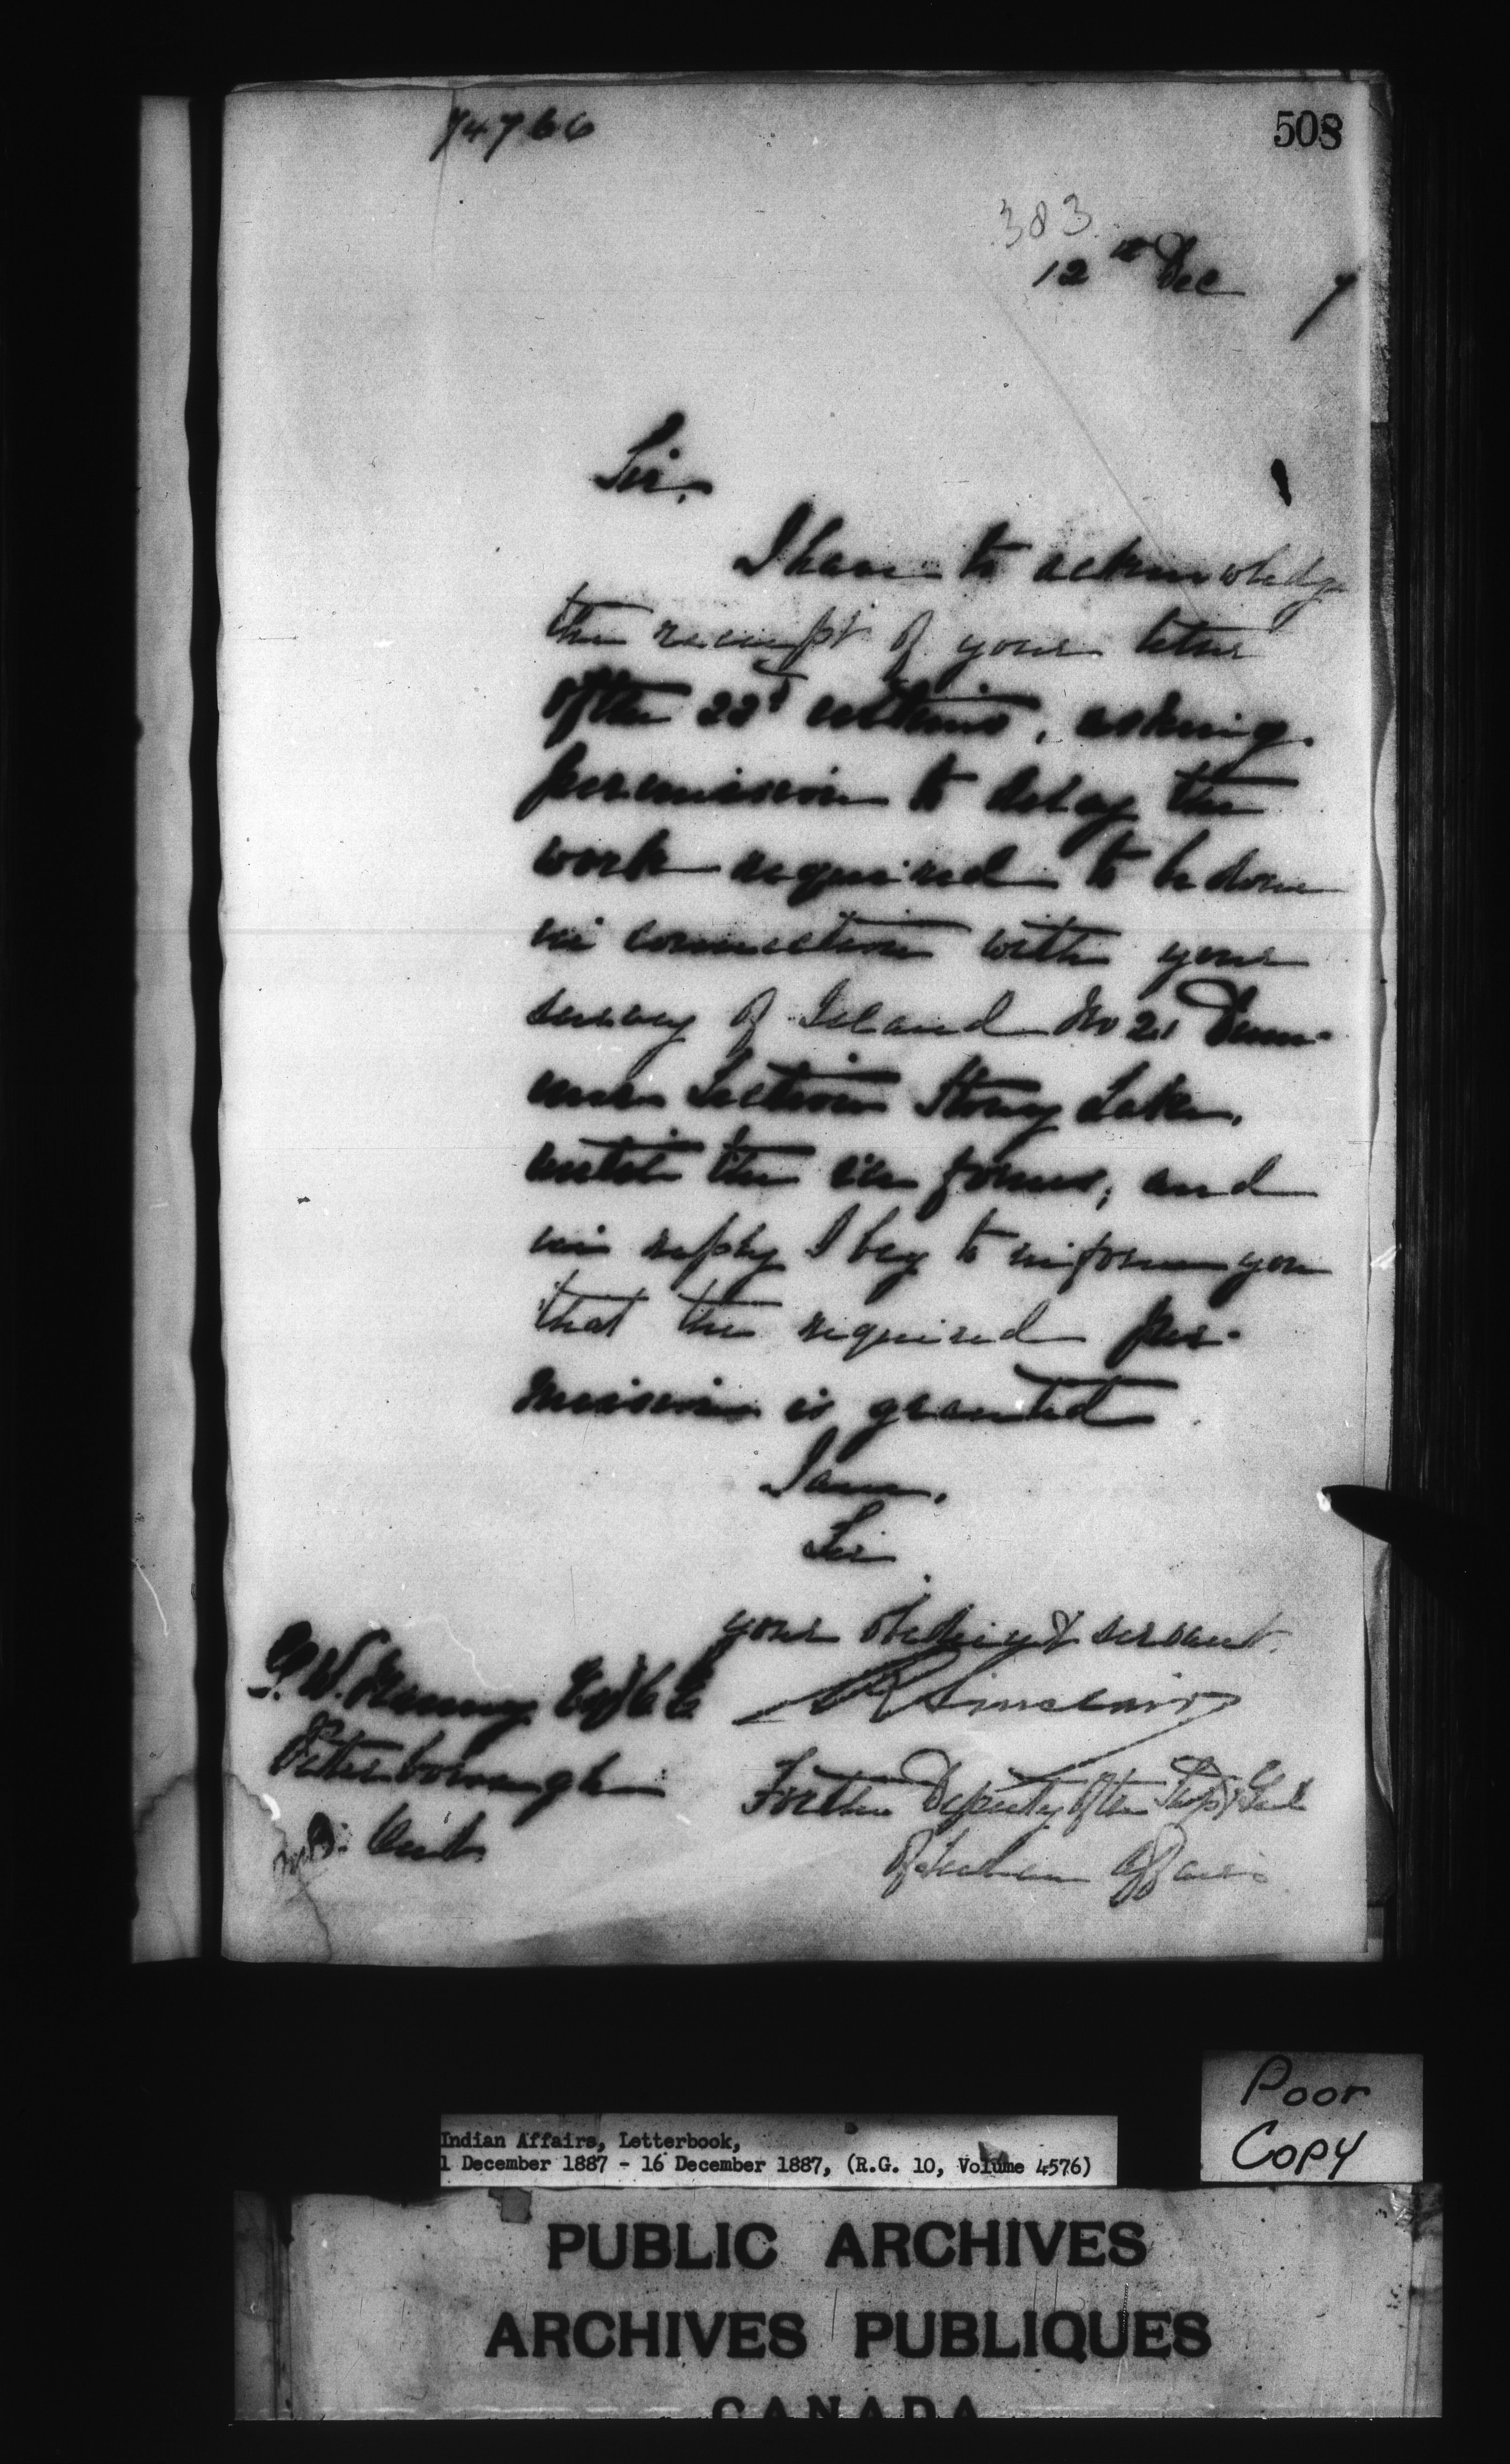 74766
508
383
12th Dec 7
Sir,
I have to acknowledge
the receipt of your letter
of the 22d ultimo, asking
permission to delay the
work required to be done
in connection with your
survey of Island No 21 Dum-
mer Section Stony Lake,
until the ice forms, and
in reply I beg to inform you
that the required per-
mission is granted.
I am,
Sir
your obedient servant.
R Sinclair
For the Deputy of the Supt Genl
of Indian Affairs
W. Esq C E
Peterborough
Ont.
Poor
Copy
Indian Affairs, Letterbook,
1 December 1887 - 16 December 1887, (R.G. 10, Volume 4576)
PUBLIC ARCHIVES
ARCHIVES PUBLIQUES
CANADA